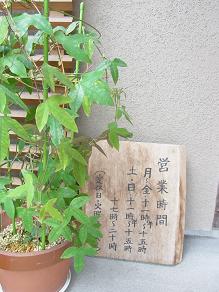 営業時間
月~金 十一時半~十五時
土・日 十二時~十五時
十七時~二十時
定休日・火曜